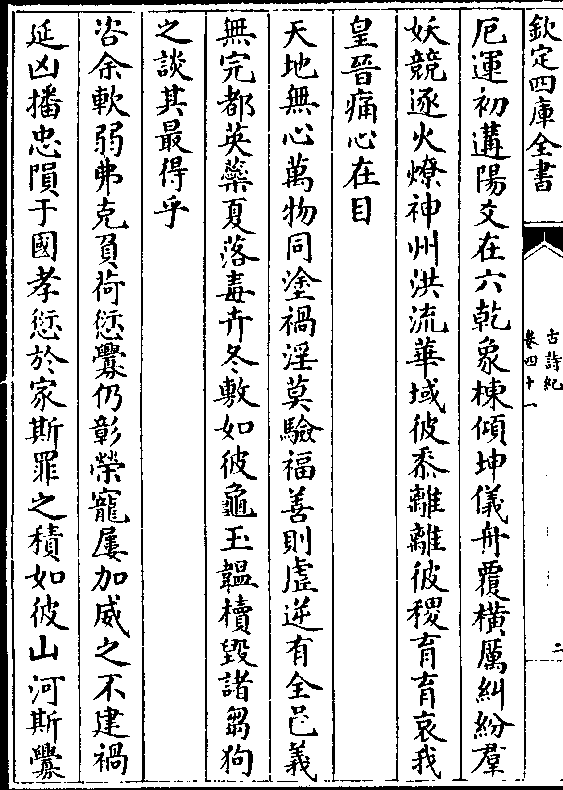 欽定四庫全書
古詩紀
卷四十一
二
厄運初遘陽爻在六乾象棟傾坤儀舟覆橫厲糾紛羣
妖競逐火燎神州洪流華域彼黍離離彼稷育育哀我
皇晉痛心在目
天地無心萬物同塗禍淫莫驗福善則虛逆有全邑義
無完都英蘂夏落毒卉冬敷如彼龜玉韞櫝毀諸芻狗
之談其最得乎
咨余軟弱弗克負荷愆釁仍彰榮寵屢加威之不建禍
延凶播忠隕于國孝愆於家斯罪之積如彼山河斯釁